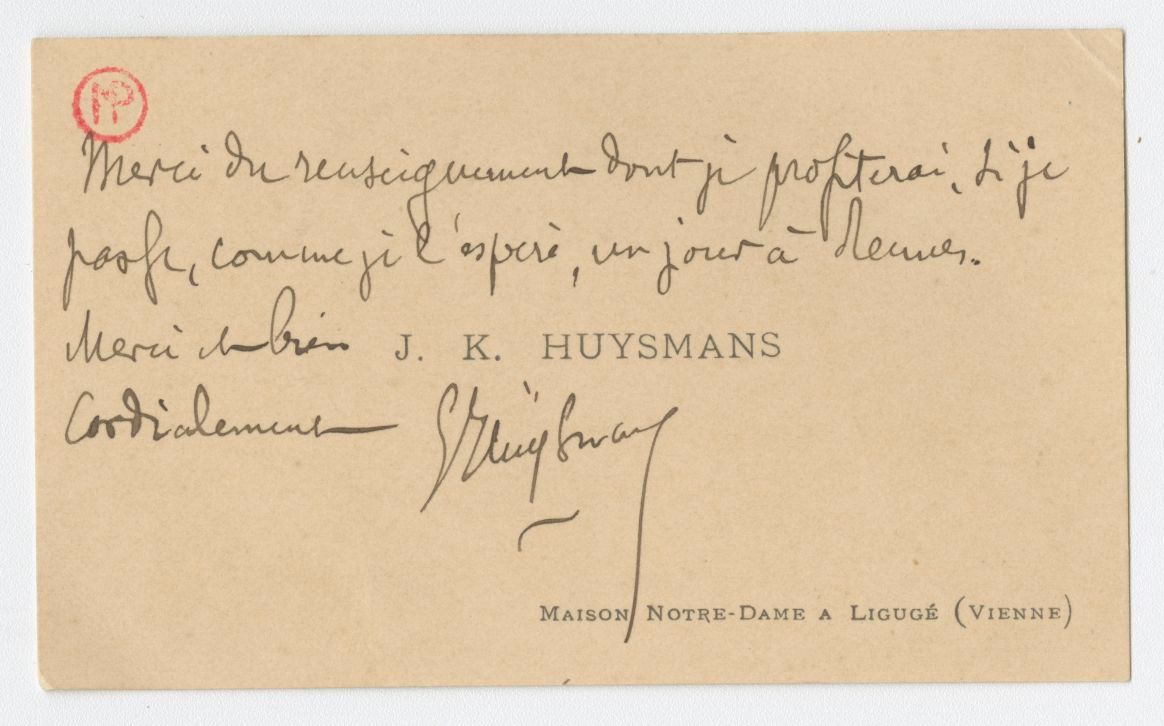 Merci du renseignement dont je profiterai, si je
passe, comme je l'espère, un jour à Rennes.
Merci et bien
J. K. HUYSMANS
Cordialement
GHuÿsmans
MAISON NOTRE-DAME A LIGUGÉ (VIENNE)